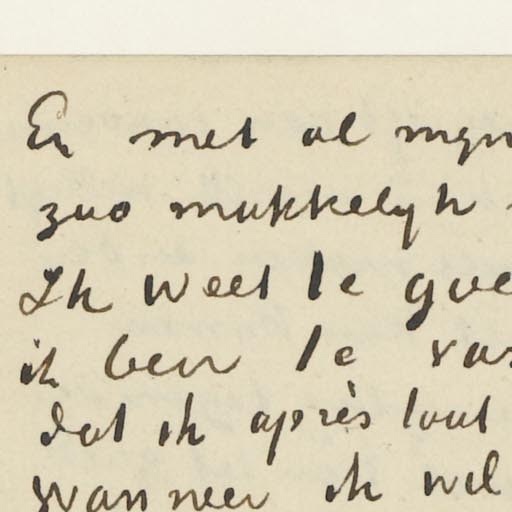 En met al mijn
zoo makkelijk
Ik weet te goe
ik ben te vas
dat ik après tout
Wanneer ik wil